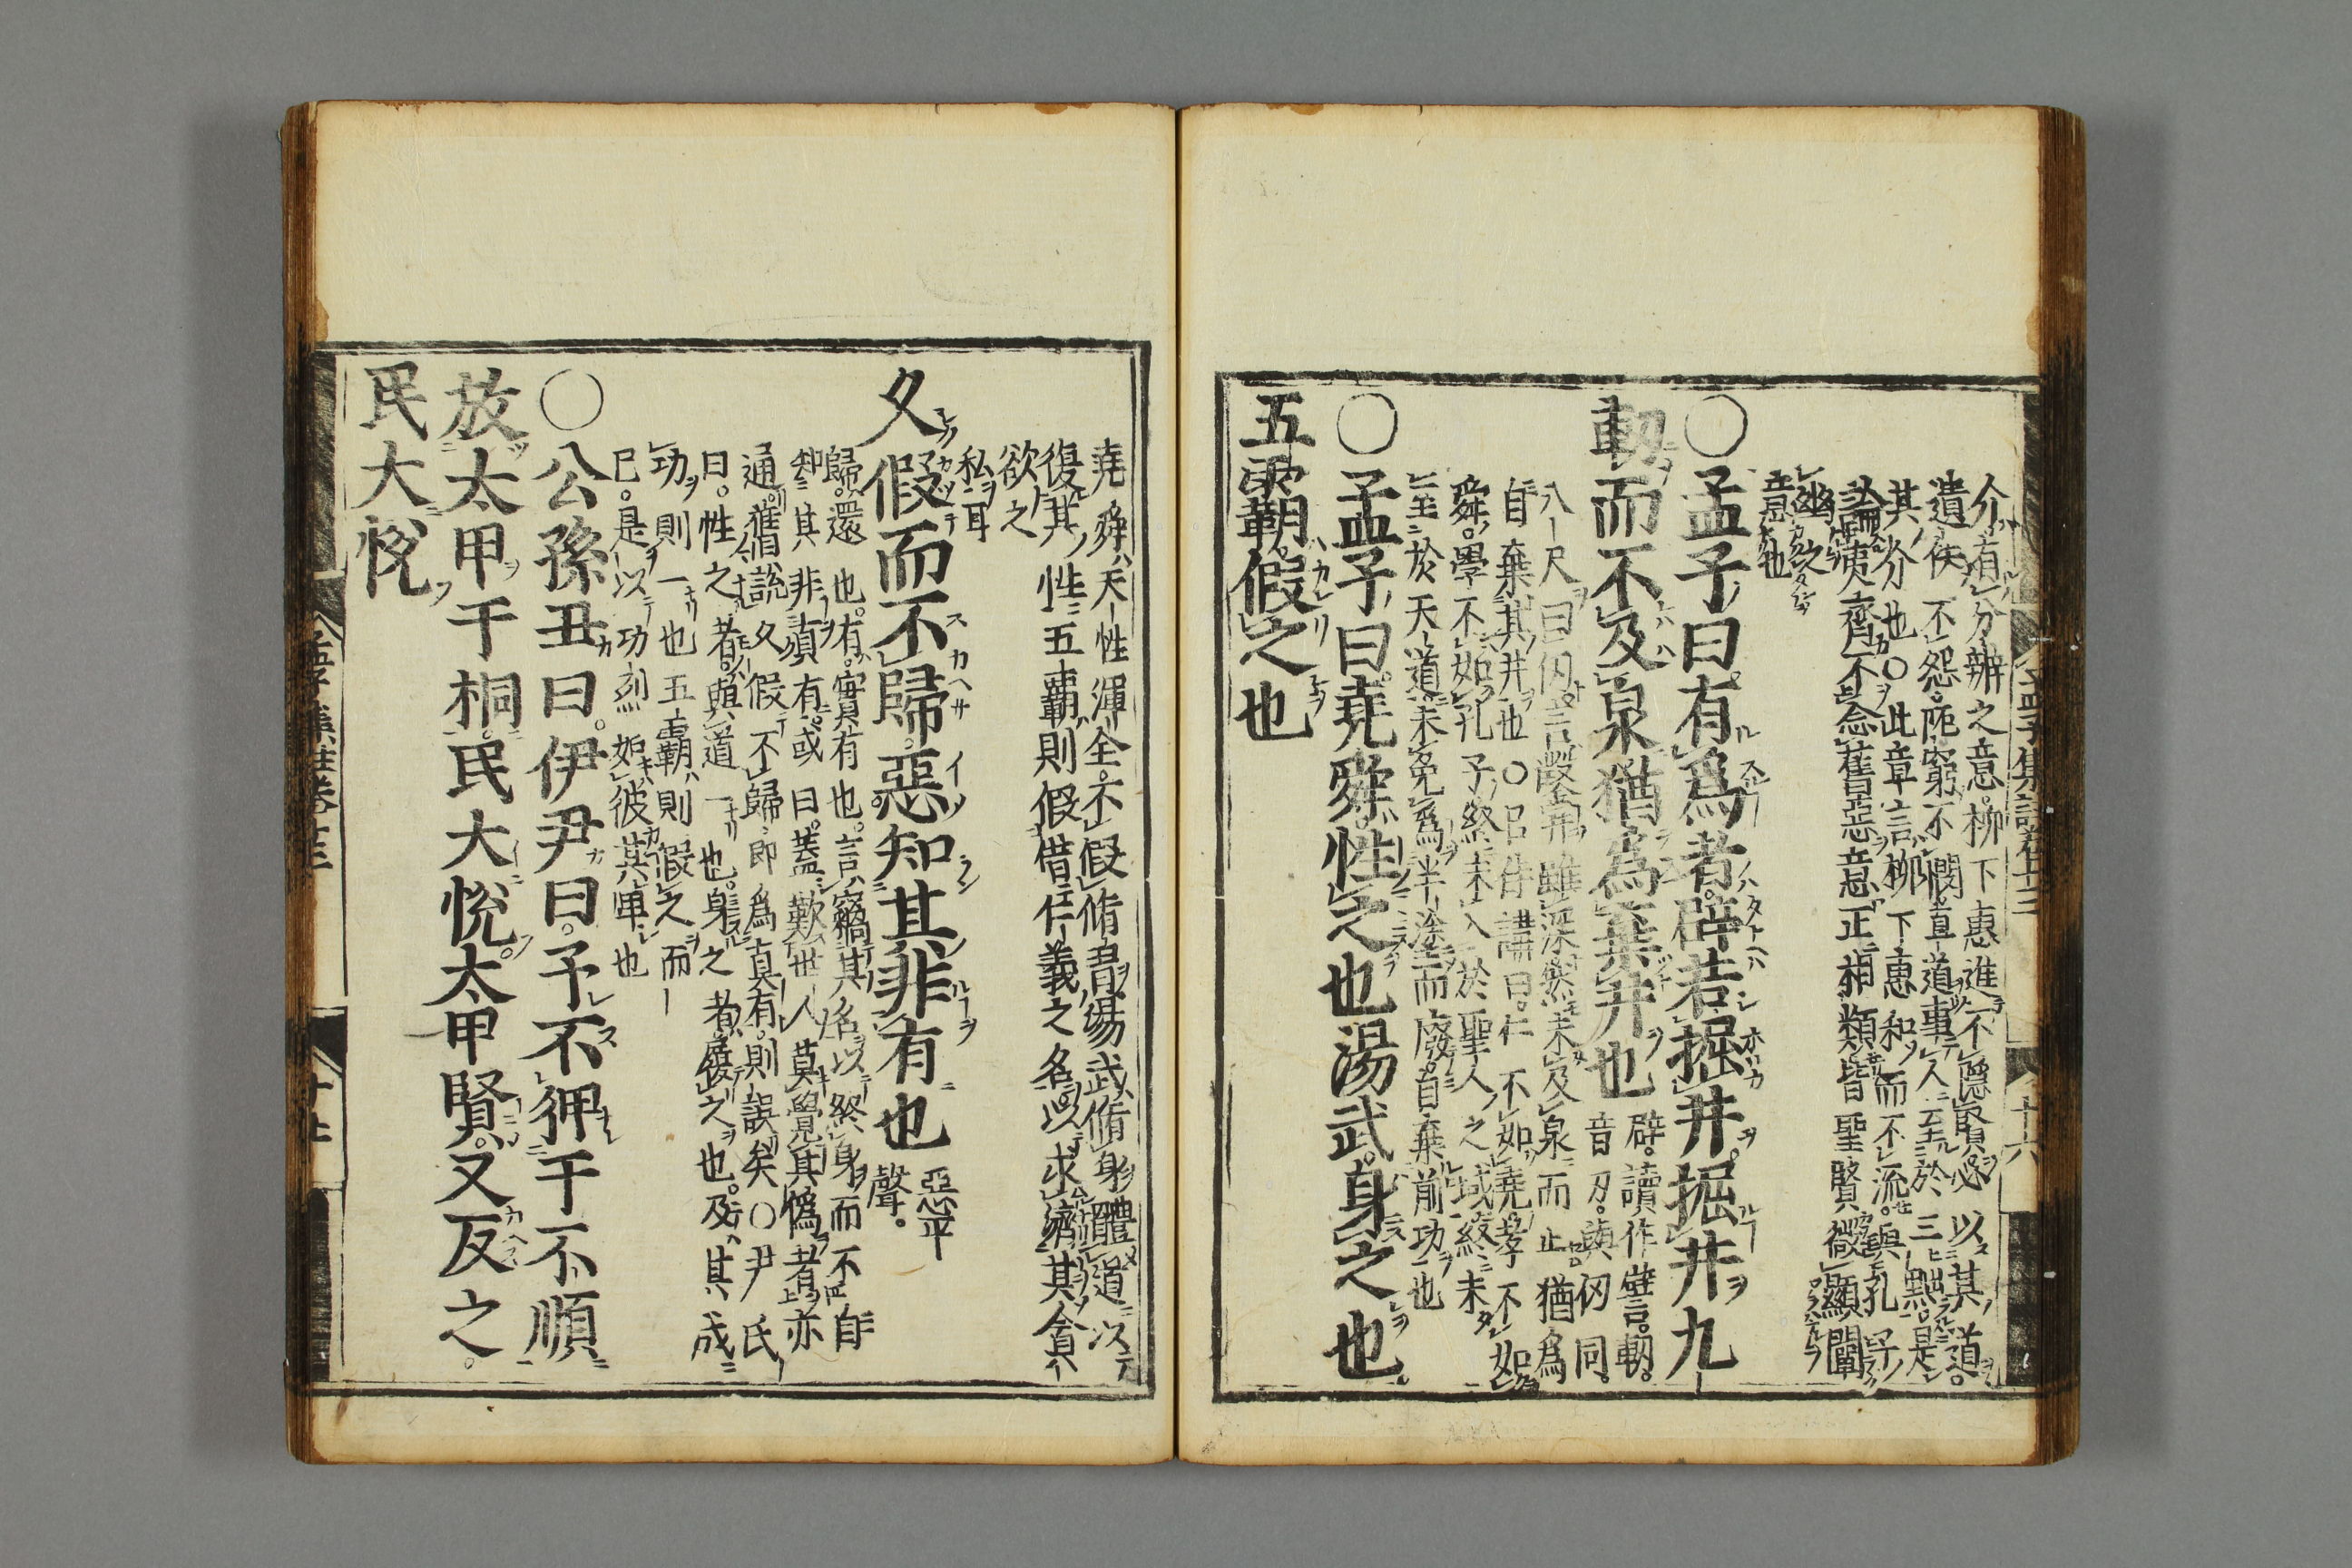 介有分辨之意柳下惠進不隱賢必以其道
遺佚不怨阨窮不憫直道事人至於三黜是
其介也○此章言柳下惠和而不流與孔子
論夷齊不念舊惡意正相類皆聖賢微顯闡
幽之
意也
○孟子曰有爲者辟若掘井掘井九
軔而不及泉猶爲棄井也
辟讀作譬軔
音刃與仞同
八尺曰仞言鑿井雖深然未及泉而止猶爲
自棄其井也○呂侍講曰仁不如堯孝不如
舜學不如孔子終未入於聖人之域終未
至於天道未免爲半塗而廢自棄前功也
○孟子曰堯舜性之也湯武身之也
五霸假之也
孟子集註卷十三
十六
堯舜天性渾全不假脩習湯武脩身體道以
復其性五霸則假借仁義之名以求濟其貪
欲之
私耳
久假而不歸惡知其非有也
惡平
聲
歸還也有實有也言竊其名以終身而不自
知其非眞有或曰蓋歎世人莫覺其僞者亦
通舊說久假不歸卽爲眞有則誤矣○尹氏
曰性之者與道一也身之者履之也及其成
功則一也五霸則假之而
已是以功烈如彼其卑也
○公孫丑曰伊尹曰予不狎于不順
放太甲于桐民大悅太甲賢又反之
民大悅
孟子集註卷十三
十七